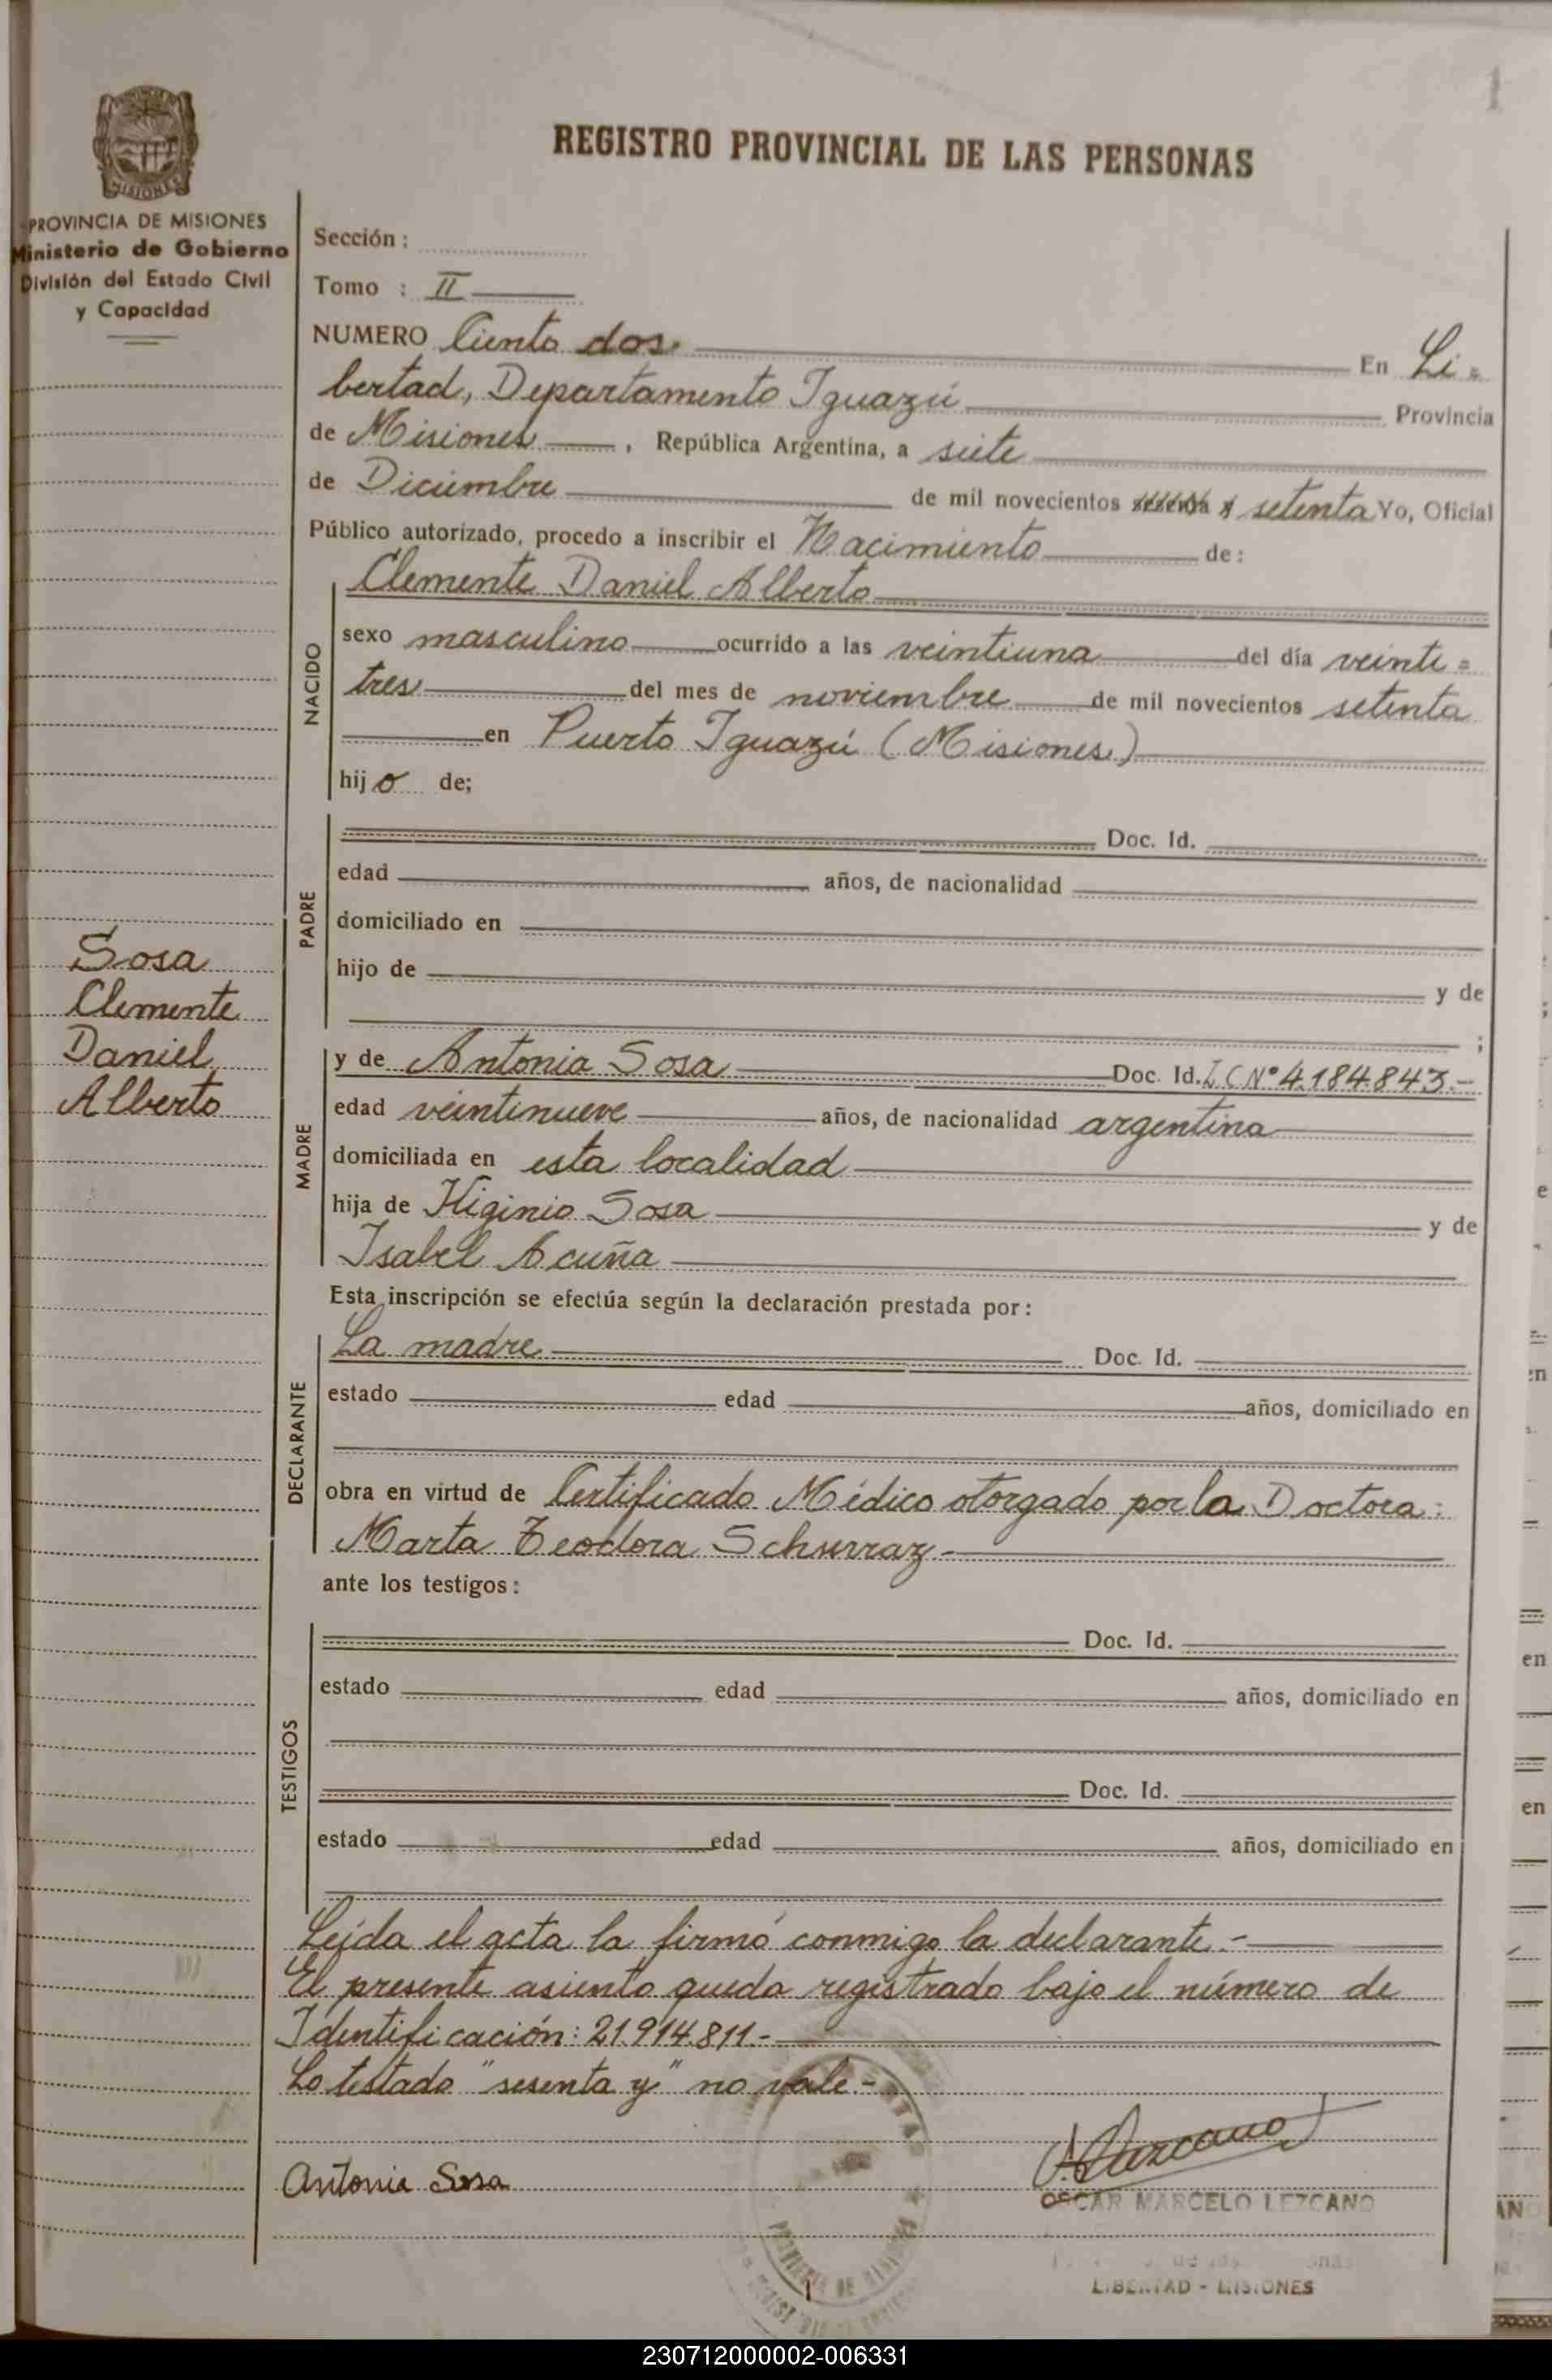 1
PROVINCIA DE MISIONES
Ministerio de Gobierno
División del Estado Civil
y Capacidad
REGISTRO PROVINCIAL DE LAS PERSONAS
Sección :
Tomo : II
NUMERO Ciento dos En Li=
bertad, Departamento Iguazú Provincia
de Misiones, República Argentina, a siete
de Diciembre de mil novecientos sesenta y setenta Yo, Oficial
Público autorizado, procedo a inscribir el Nacimiento de:
NACIDO
Clemente Daniel Alberto
sexo masculino ocurrido a las veintiuna del día veinti=
tres del mes de noviembre de mil novecientos setenta
en Puerto Iguazú (Misiones)
hijo de;
PADRE
Doc. Id.
edad años, de nacionalidad
domiciliado en
hijo de y de
;
Sosa
Clemente
Daniel
Alberto
MADRE
y de Antonia Sosa Doc. Id. LC Nº 4.184.843.-
edad veintinueve años, de nacionalidad argentina
domiciliada en esta localidad
hija de Higinio Sosa y de
Isabel Acuña
Esta inscripción se efectúa según la declaración prestada por:
DECLARANTE
La madre Doc. Id.
estado edad años, domiciliado en
obra en virtud de Certificado Médico otorgado por la Doctora:
Marta Teodora Schurraz.-
ante los testigos:
TESTIGOS
Doc. Id.
estado edad años, domiciliado en
Doc. Id.
estado edad años, domiciliado en
Leída el acta la firmó conmigo la declarante.-
El presente asiento queda registrado bajo el número de
Identificación: 21.914.811.-
Lo testado "sesenta y" no vale.-
Antonia Sosa
OSCAR MARCELO LEZCANO
LIBERTAD - MISIONES
230712000002-006331